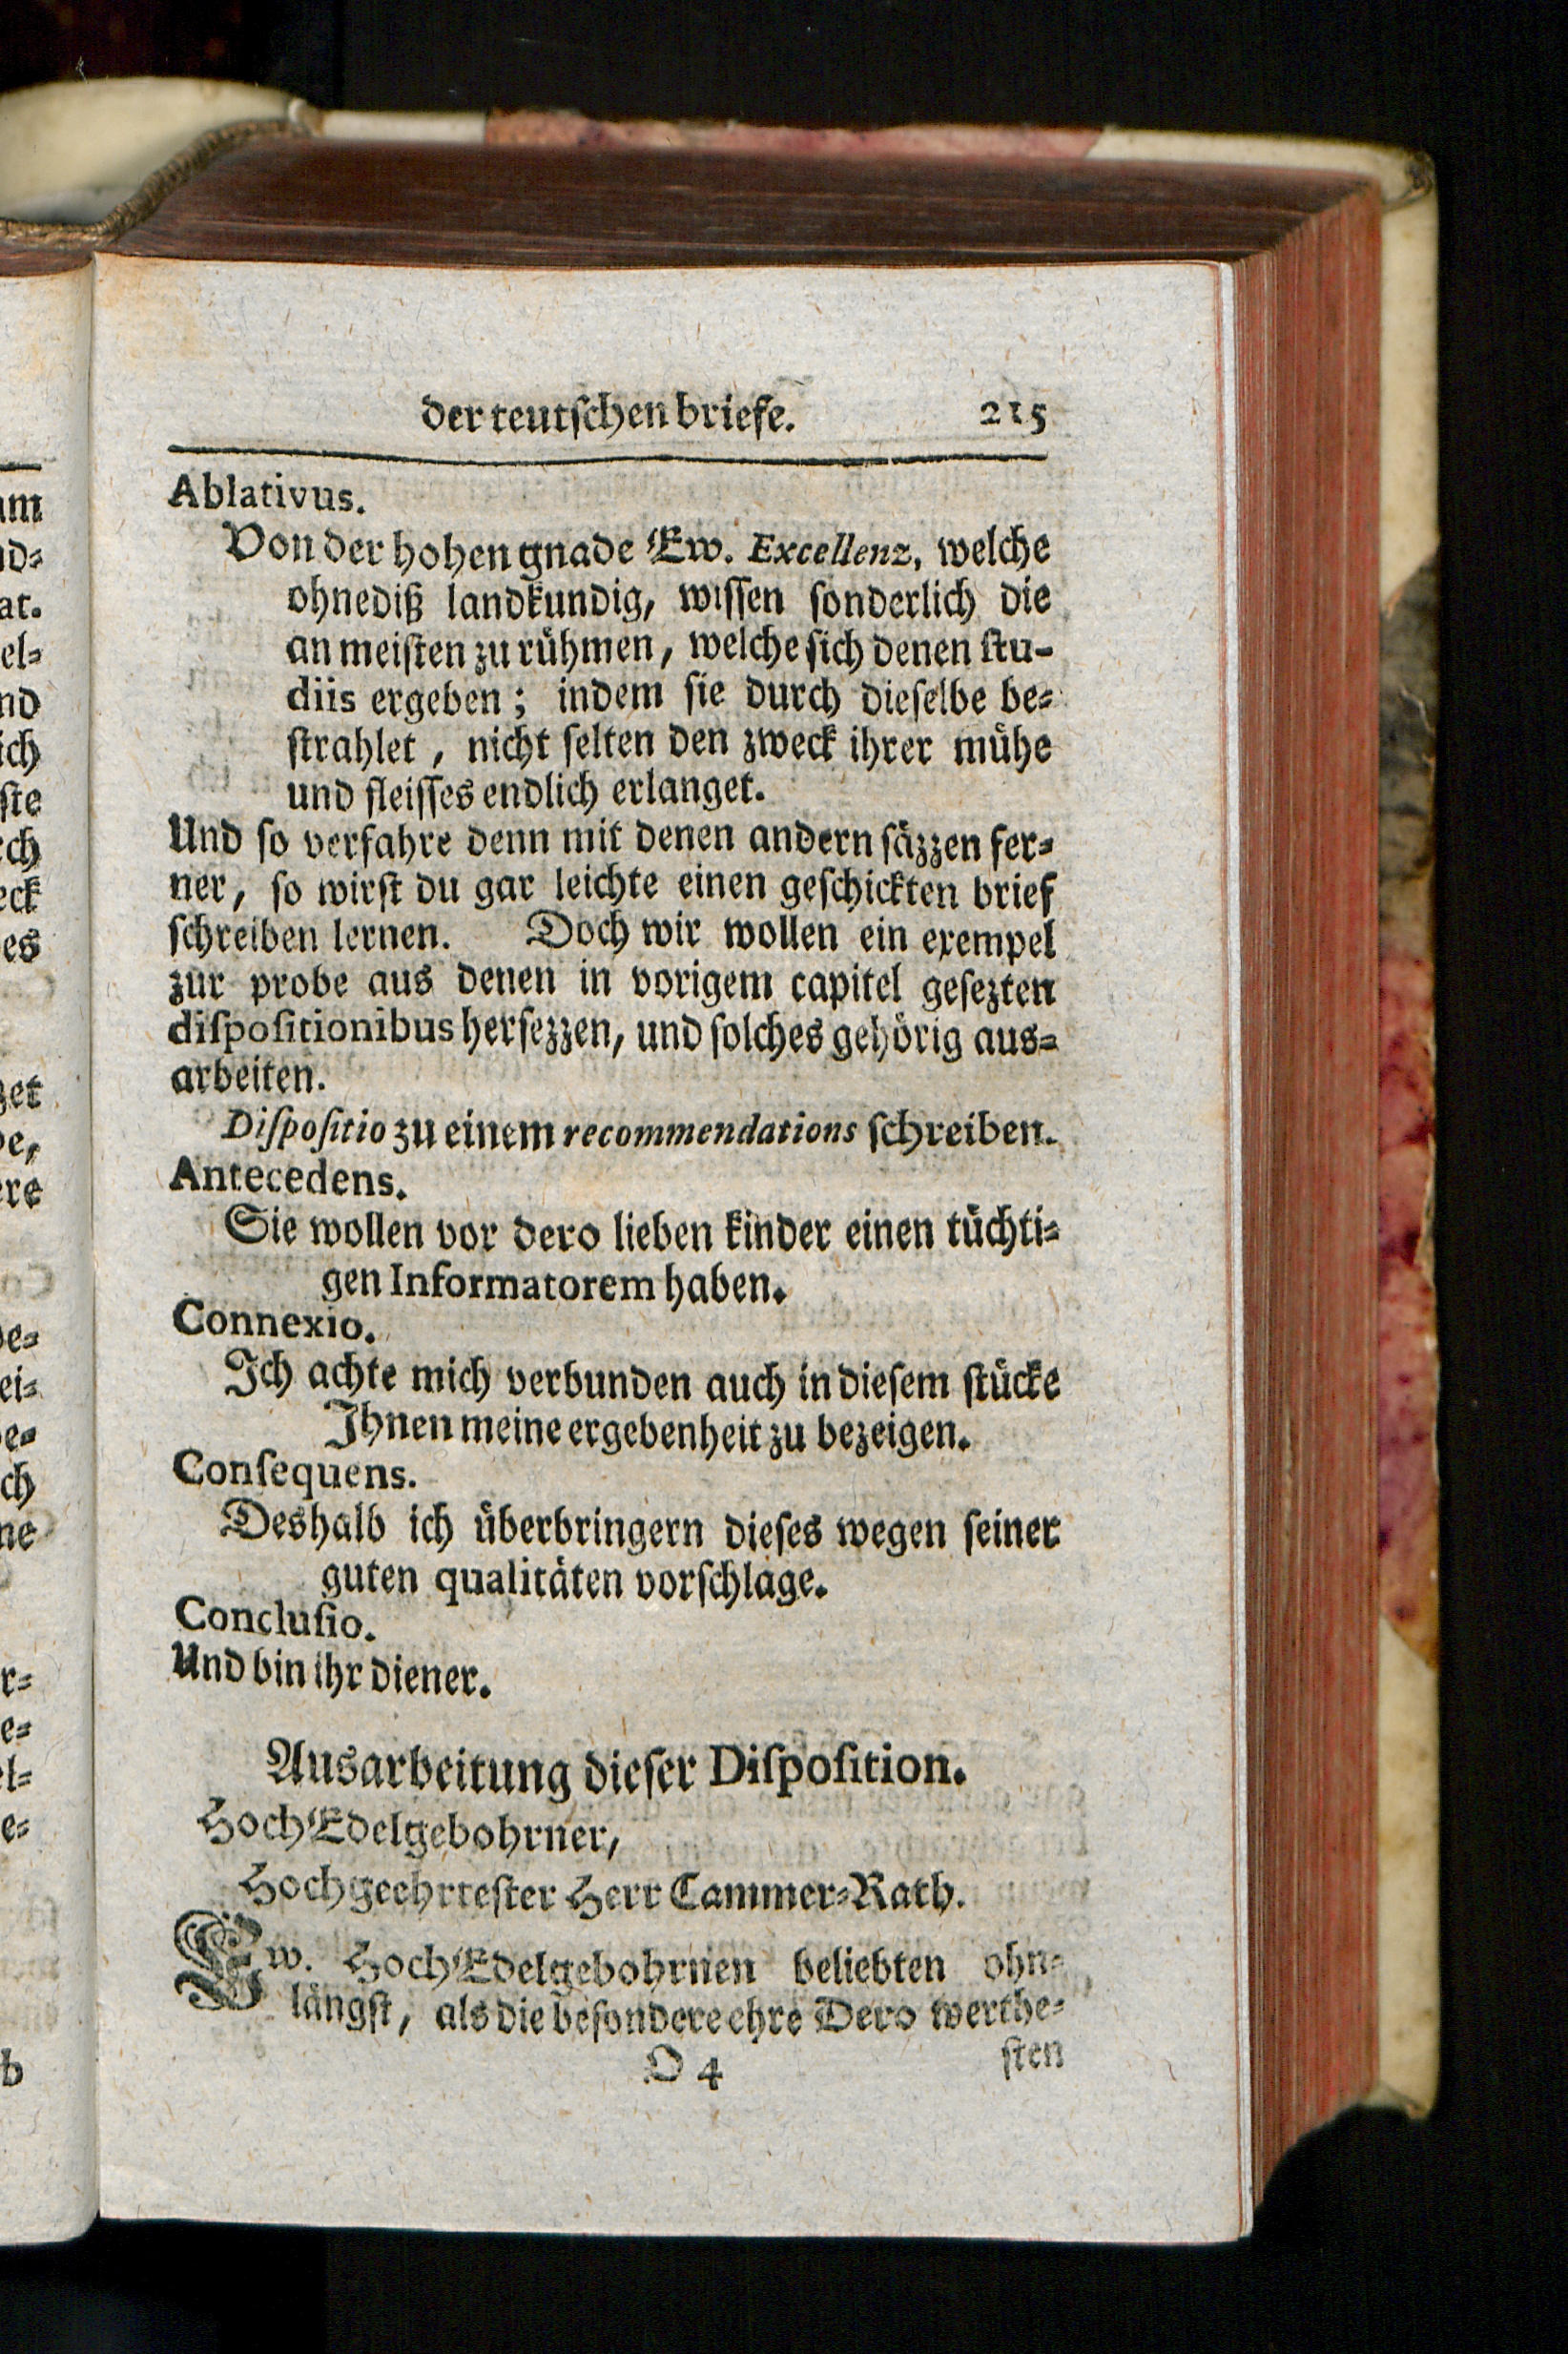 der teutschen briefe. 215
Ablativus.
Von der hohen gnade Ew. Excellenz, welche
ohnediß landkundig, wissen sonderlich die
an meisten zu rühmen, welche sich denen stu-
diis ergeben; indem sie durch dieselbe be-
strahlet, nicht selten den zweck ihrer mühe
und fleisses endlich erlanget.
Und so verfahre denn mit denen andern säzzen fer-
ner, so wirst du gar leichte einen geschickten brief
schreiben lernen. Doch wir wollen ein exempel
zur probe aus denen in vorigem capitel gesezten
dispositionibus hersezzen, und solches gehörig aus-
arbeiten.
Dispositio zu einem recommendations schreiben.
Antecedens.
Sie wollen vor dero lieben kinder einen tüchti-
gen Informatorem haben.
Connexio.
Ich achte mich verbunden auch in diesem stücke
Ihnen meine ergebenheit zu bezeigen.
Consequens.
Deshalb ich überbringern dieses wegen seiner
guten qualitäten vorschlage.
Conclusio.
Und bin ihr diener.
Ausarbeitung dieser Disposition.
HochEdelgebohrner,
Hochgeehrtester Herr Cammer-Rath.
Ew. HochEdelgebohrnen beliebten ohn-
längst, als die besondere ehre Dero werthe-
O 4 sten